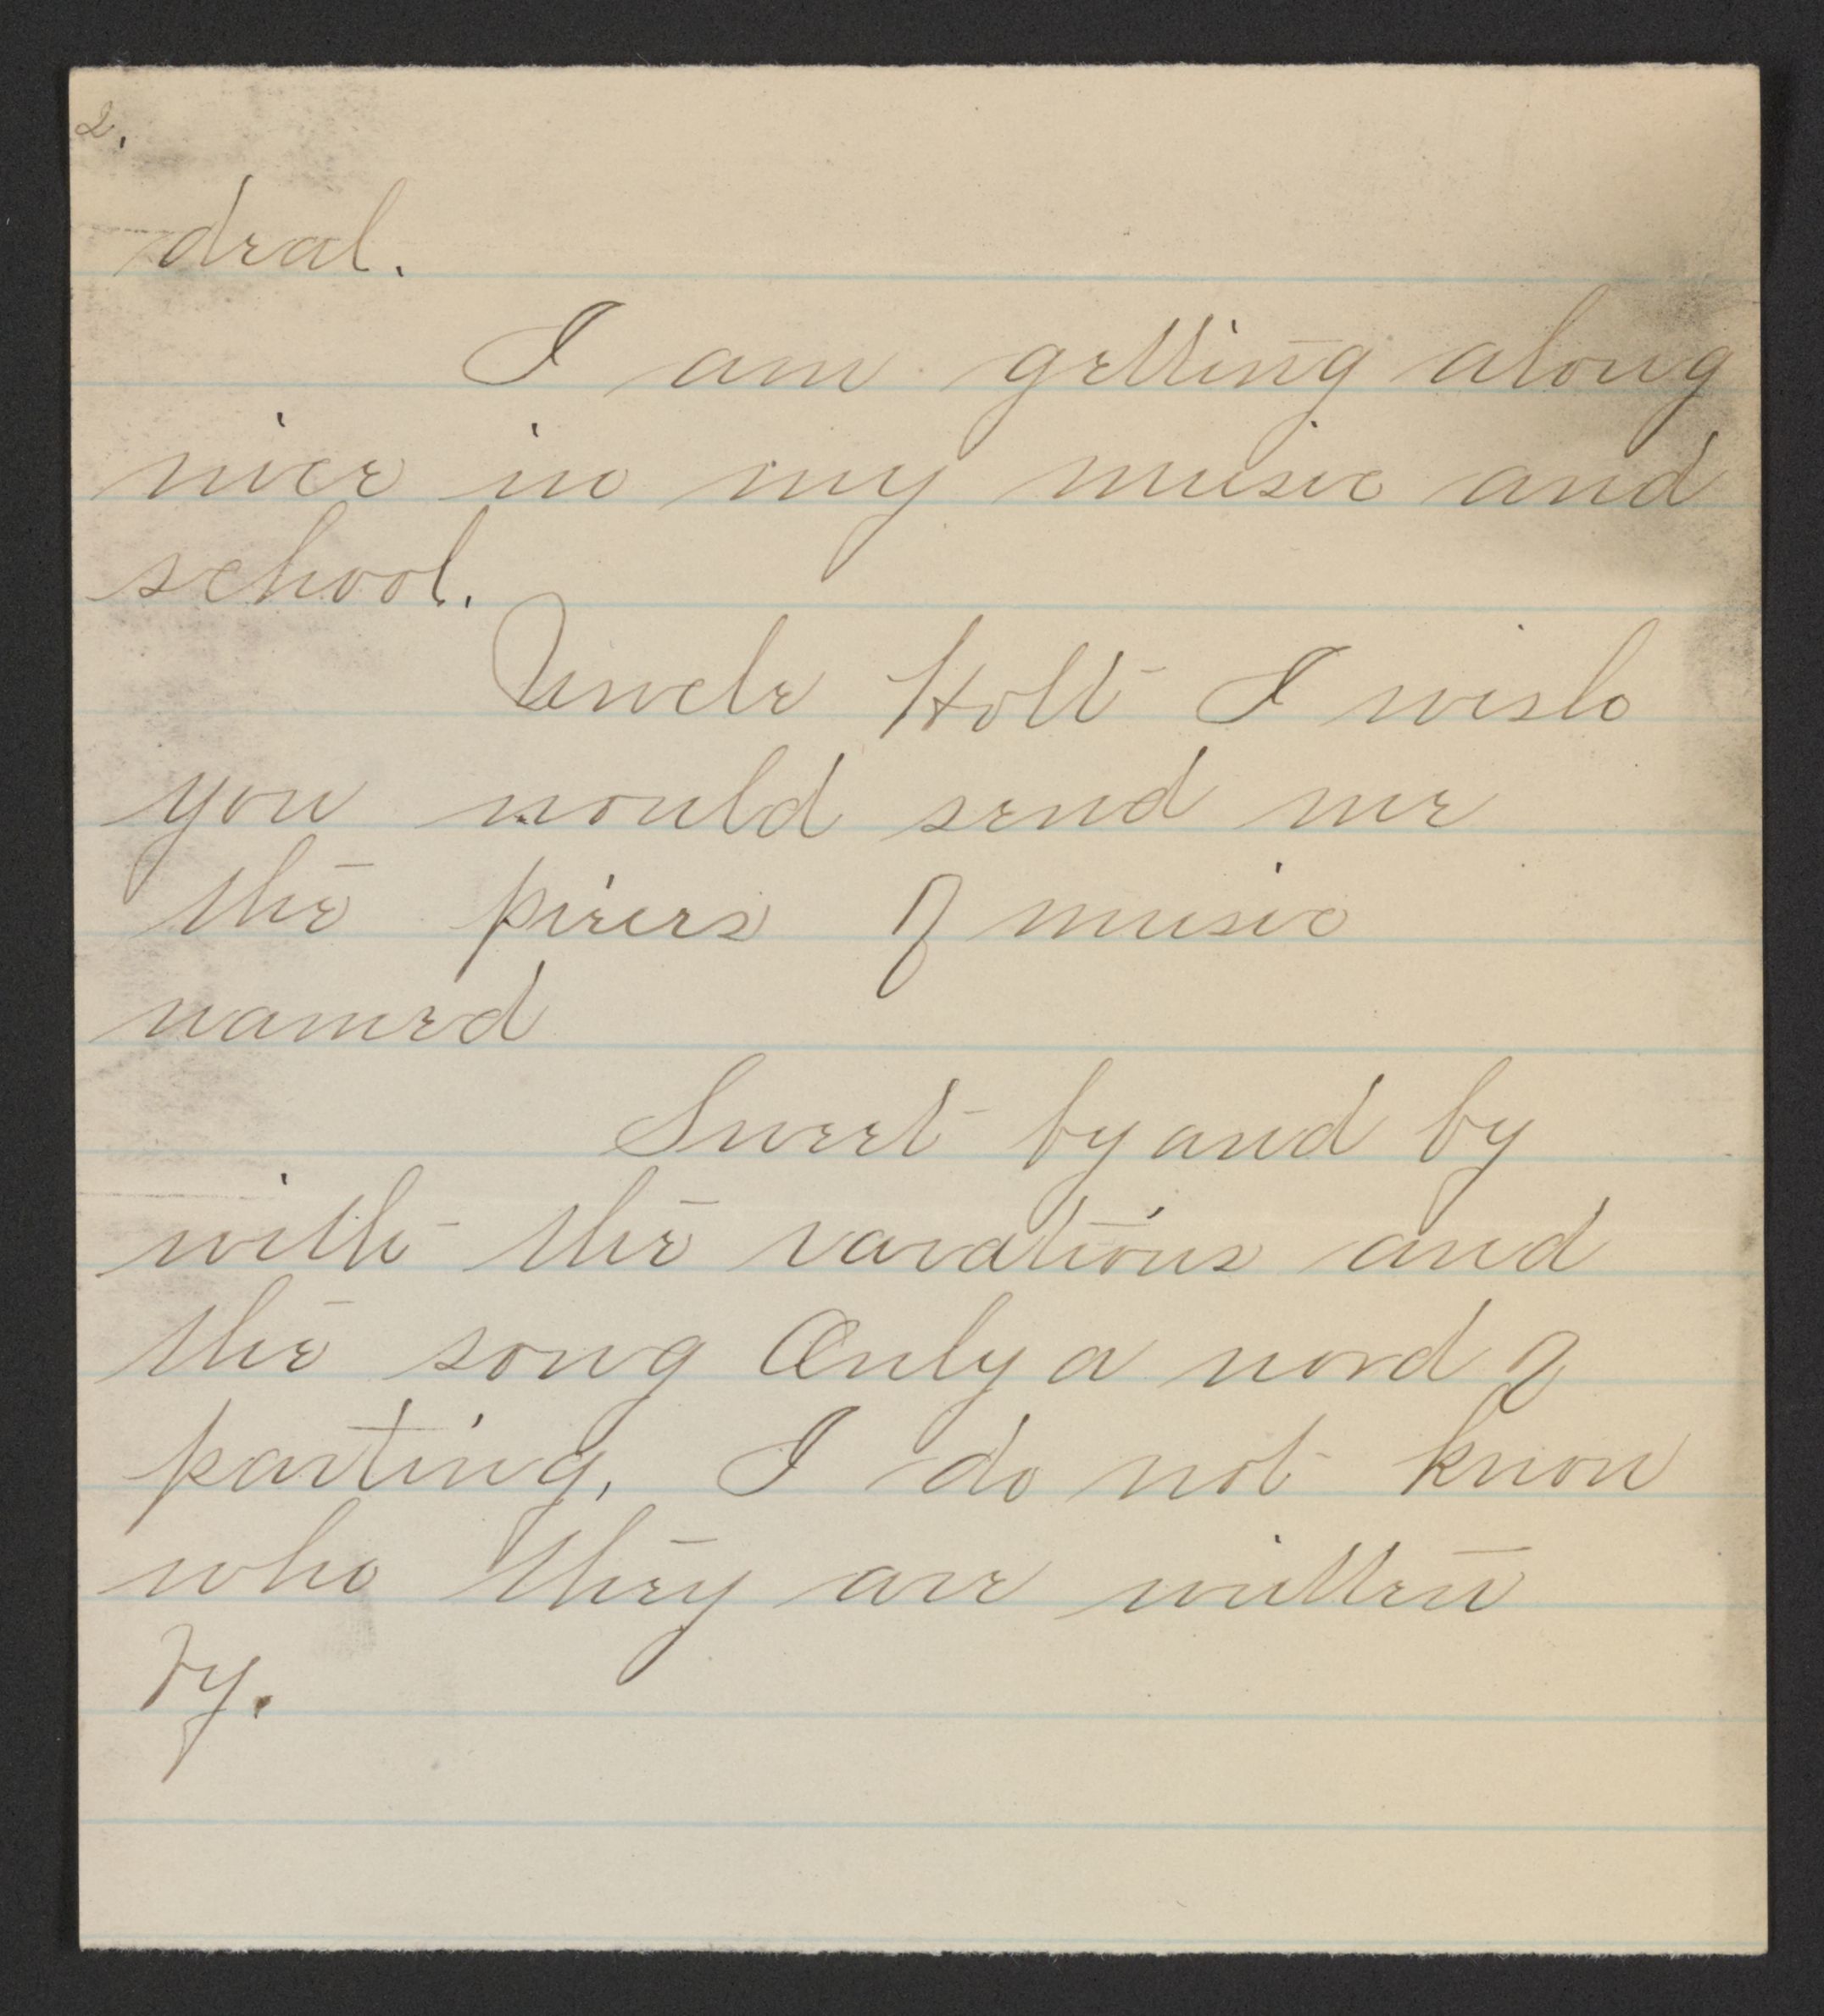 2.
dral.
I am getting along
nice in my music and
school.
Uncle Holt I wish
you would send me
the pieces of music
named
Sweet by and by
with the varations and
the song Only a word of
parting. I do not know
who they are written
by.